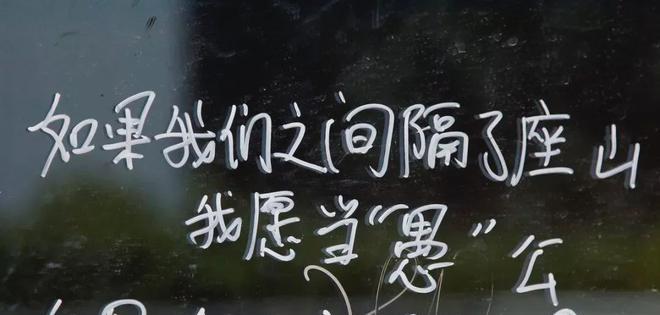 如果我们之间隔了座山
我愿当“愚”公